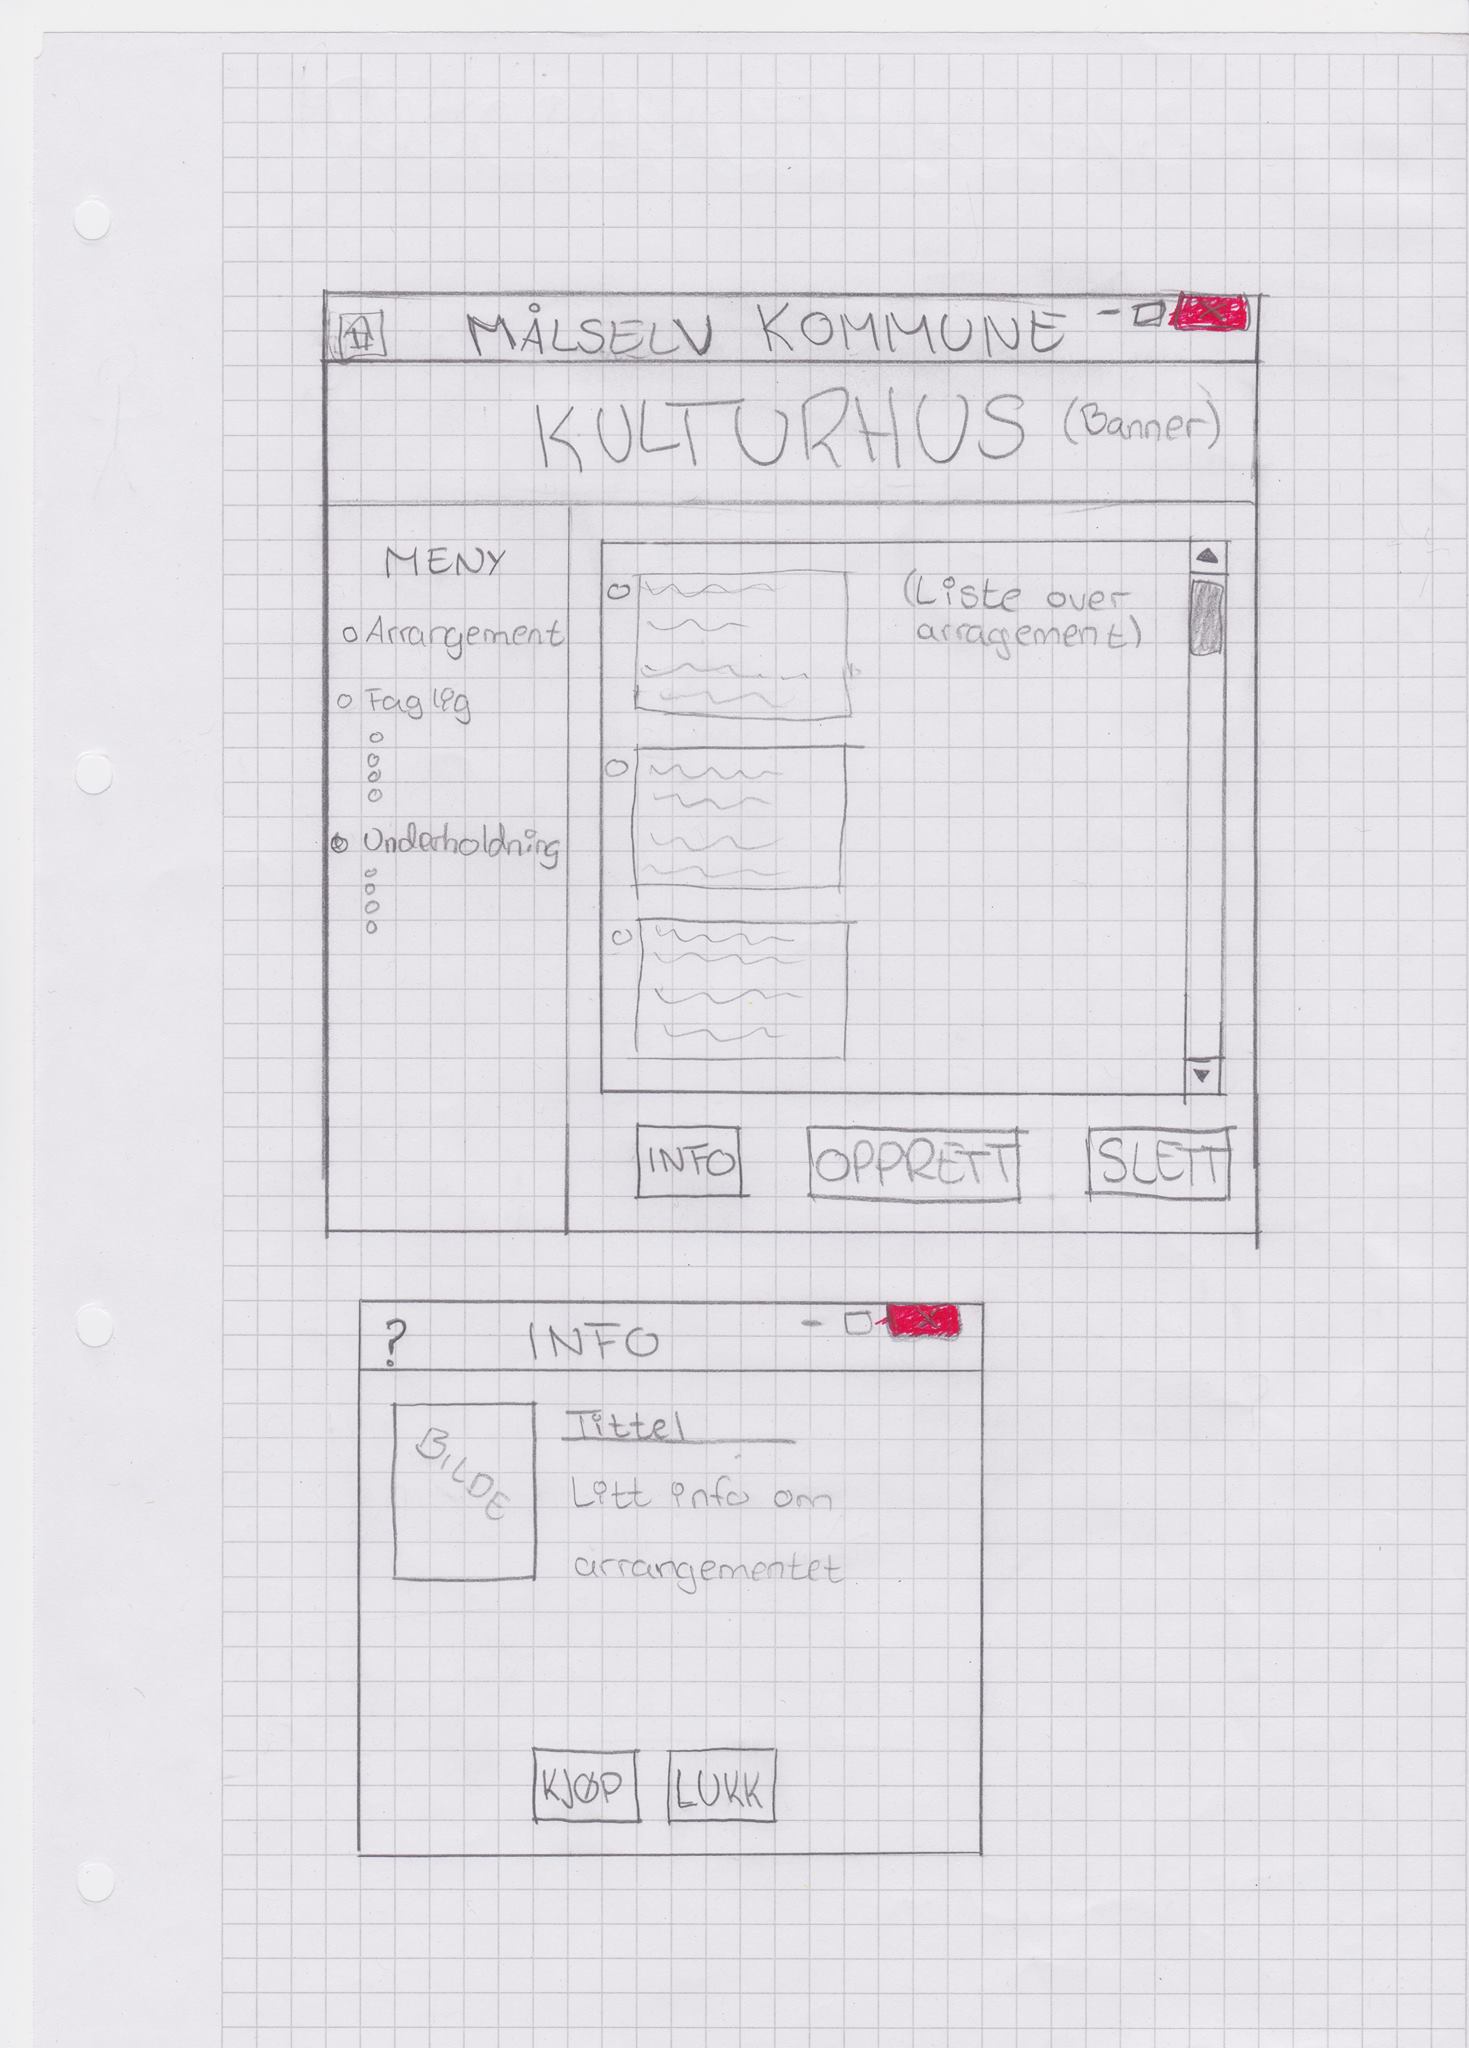 MÅLSELV KOMMUNE - X
KULTURHUS (Banner)
MENY
Arrangement
Faglig
Underholdning
(Liste over
arragement)
INFO
OPPRETT
SLETT
? INFO - X
BILDE
Tittel
Litt info om
arrangementet
KJØP
LUKK